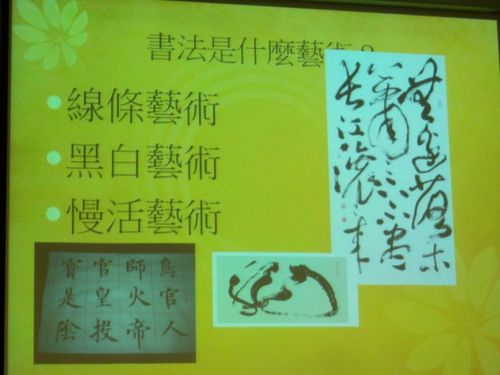 書法是什麼藝術？
線條藝術
黑白藝術
慢活藝術
無邊落木
蕭蕭下不盡
長江滾滾來
鳥官人
師火帝
官皇投
寶是陰